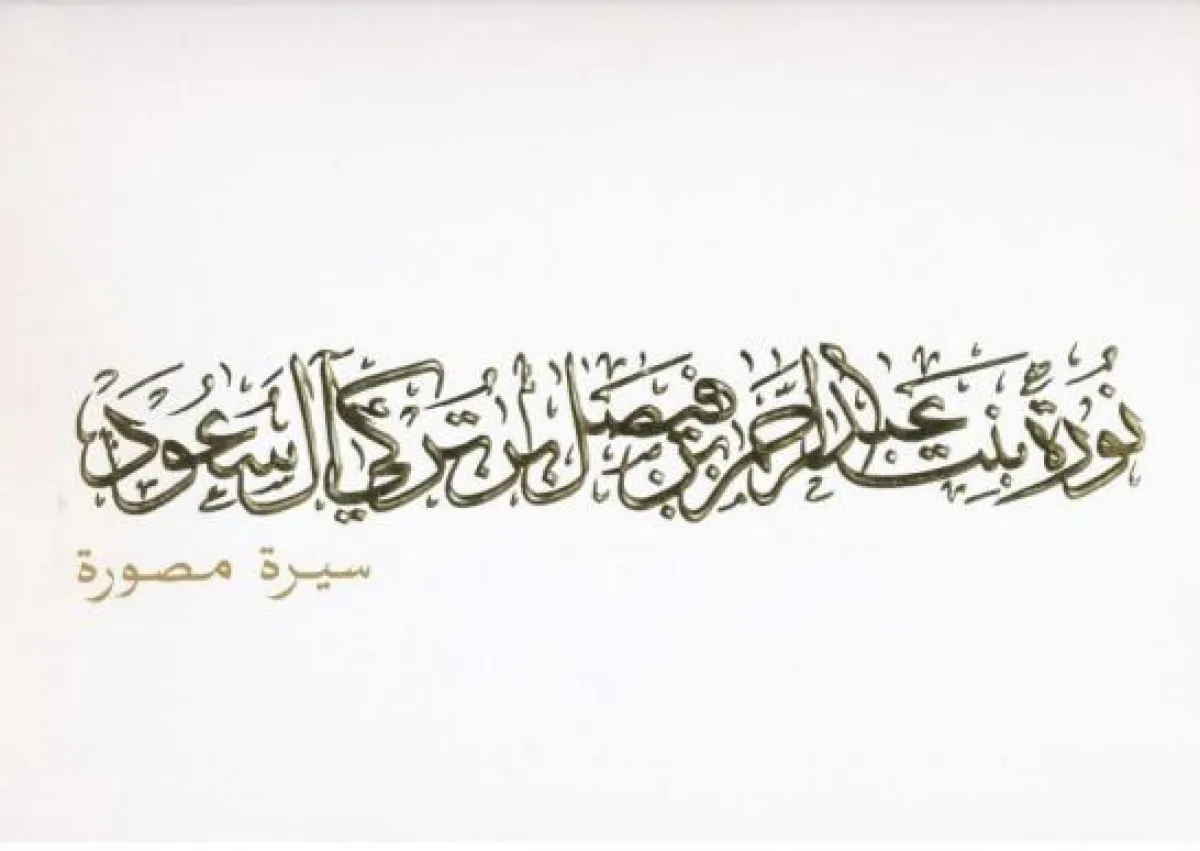 نورة بنت عبدالرحمن بن فيصل بن تركي آل سعود
سيرة مصورة